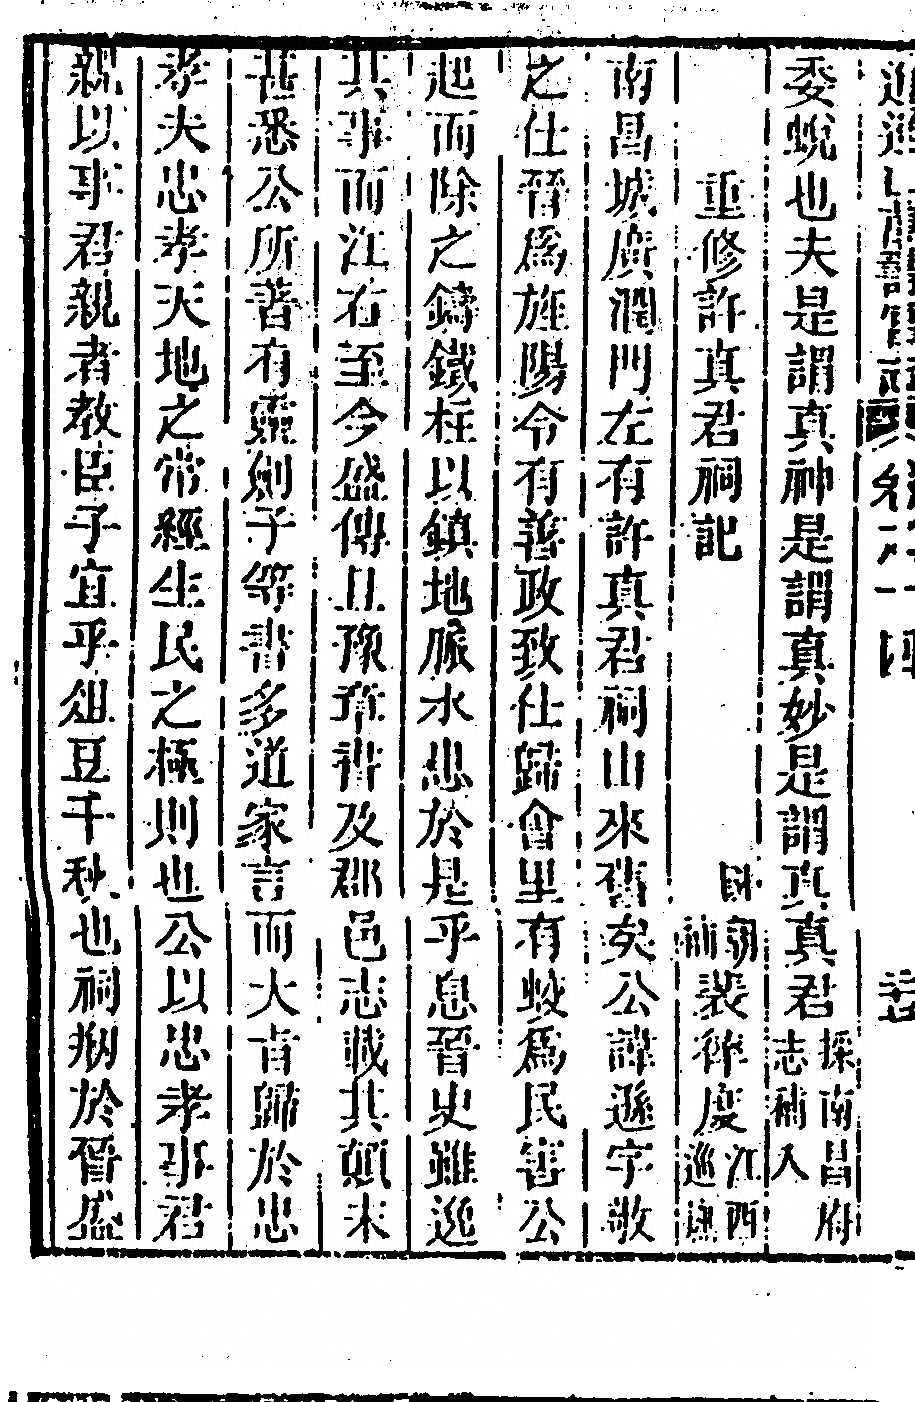 委蛻也夫是謂真神是謂真妙是謂真真君採南昌府志補入
重修許真君祠記 國朝裴𢕑度江西巡撫
南昌城廣潤門左有許真君祠由來舊矣公諱遜字敬
之仕晉爲旌陽令有善政致仕歸會里有蛟爲民害公
起而除之鑄鐵柱以鎮地脈水患於是乎息晉史雖逸
其事而江右至今盛傳且豫章書及郡邑志載其顛末
甚悉公所著有靈劍子等書多道家言而大旨歸於忠
孝夫忠孝天地之常經生民之極則也公以忠孝事君
親以事君親者教臣子宜乎俎豆千秋也祠剏於晉盛